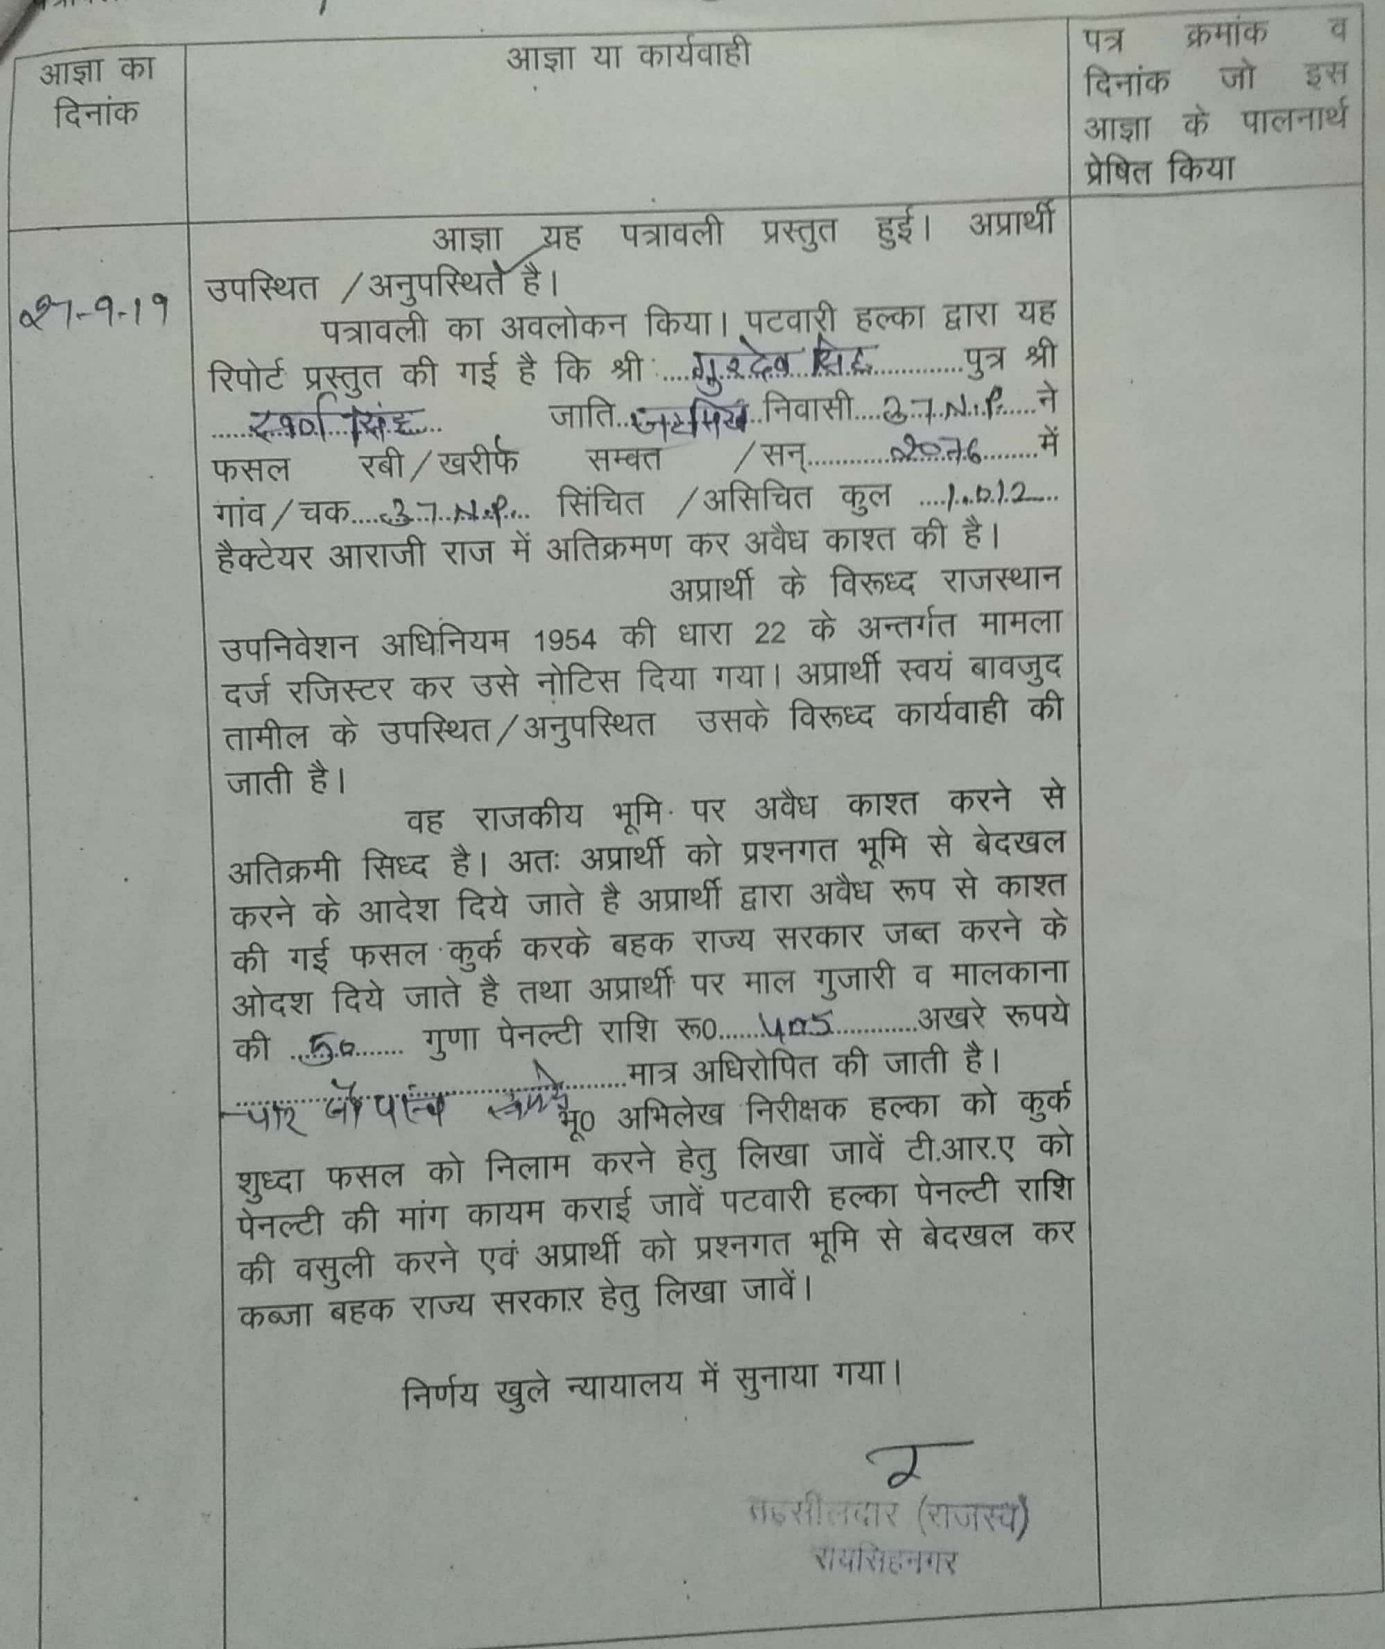 आज्ञा का
दिनांक
आज्ञा या कार्यवाही
पत्र क्रमांक व
दिनांक जो इस
आज्ञा के पालनार्थ
प्रेषित किया
27-9-19
आज्ञा यह पत्रावली प्रस्तुत हुई। अप्रार्थी
उपस्थित /अनुपस्थित है।
पत्रावली का अवलोकन किया। पटवारी हल्का द्वारा यह
रिपोर्ट प्रस्तुत की गई है कि श्री ....गुरदेव सिंह............पुत्र श्री
सिंह.. जाति..जटसिख निवासी....37.N.P.....ने
फसल रबी/खरीफ सम्वत /सन्............2076.......में
गांव/चक....37.N.P... सिंचित /असिचित कुल ....1.012....
हैक्टेयर आराजी राज में अतिक्रमण कर अवैध काश्त की है।
अप्रार्थी के विरूध्द राजस्थान
उपनिवेशन अधिनियम 1954 की धारा 22 के अन्तर्गत मामला
दर्ज रजिस्टर कर उसे नोटिस दिया गया। अप्रार्थी स्वयं बावजुद
तामील के उपस्थित/अनुपस्थित उसके विरूध्द कार्यवाही की
जाती है।
वह राजकीय भूमि पर अवैध काश्त करने से
अतिक्रमी सिध्द है। अतः अप्रार्थी को प्रश्नगत भूमि से बेदखल
करने के आदेश दिये जाते है अप्रार्थी द्वारा अवैध रूप से काश्त
की गई फसल कुर्क करके बहक राज्य सरकार जब्त करने के
ओदश दिये जाते है तथा अप्रार्थी पर माल गुजारी व मालकाना
की ..50....... गुणा पेनल्टी राशि रू0......405............अखरे रूपये
चार सौ पांच रूपये........मात्र अधिरोपित की जाती है।
भू0 अभिलेख निरीक्षक हल्का को कुर्क
शुध्दा फसल को निलाम करने हेतु लिखा जावें टी.आर.ए को
पेनल्टी की मांग कायम कराई जावें पटवारी हल्का पेनल्टी राशि
की वसुली करने एवं अप्रार्थी को प्रश्नगत भूमि से बेदखल कर
कब्जा बहक राज्य सरकार हेतु लिखा जावें।
निर्णय खुले न्यायालय में सुनाया गया।
तहसीलदार (राजस्व)
रायसिहनगर